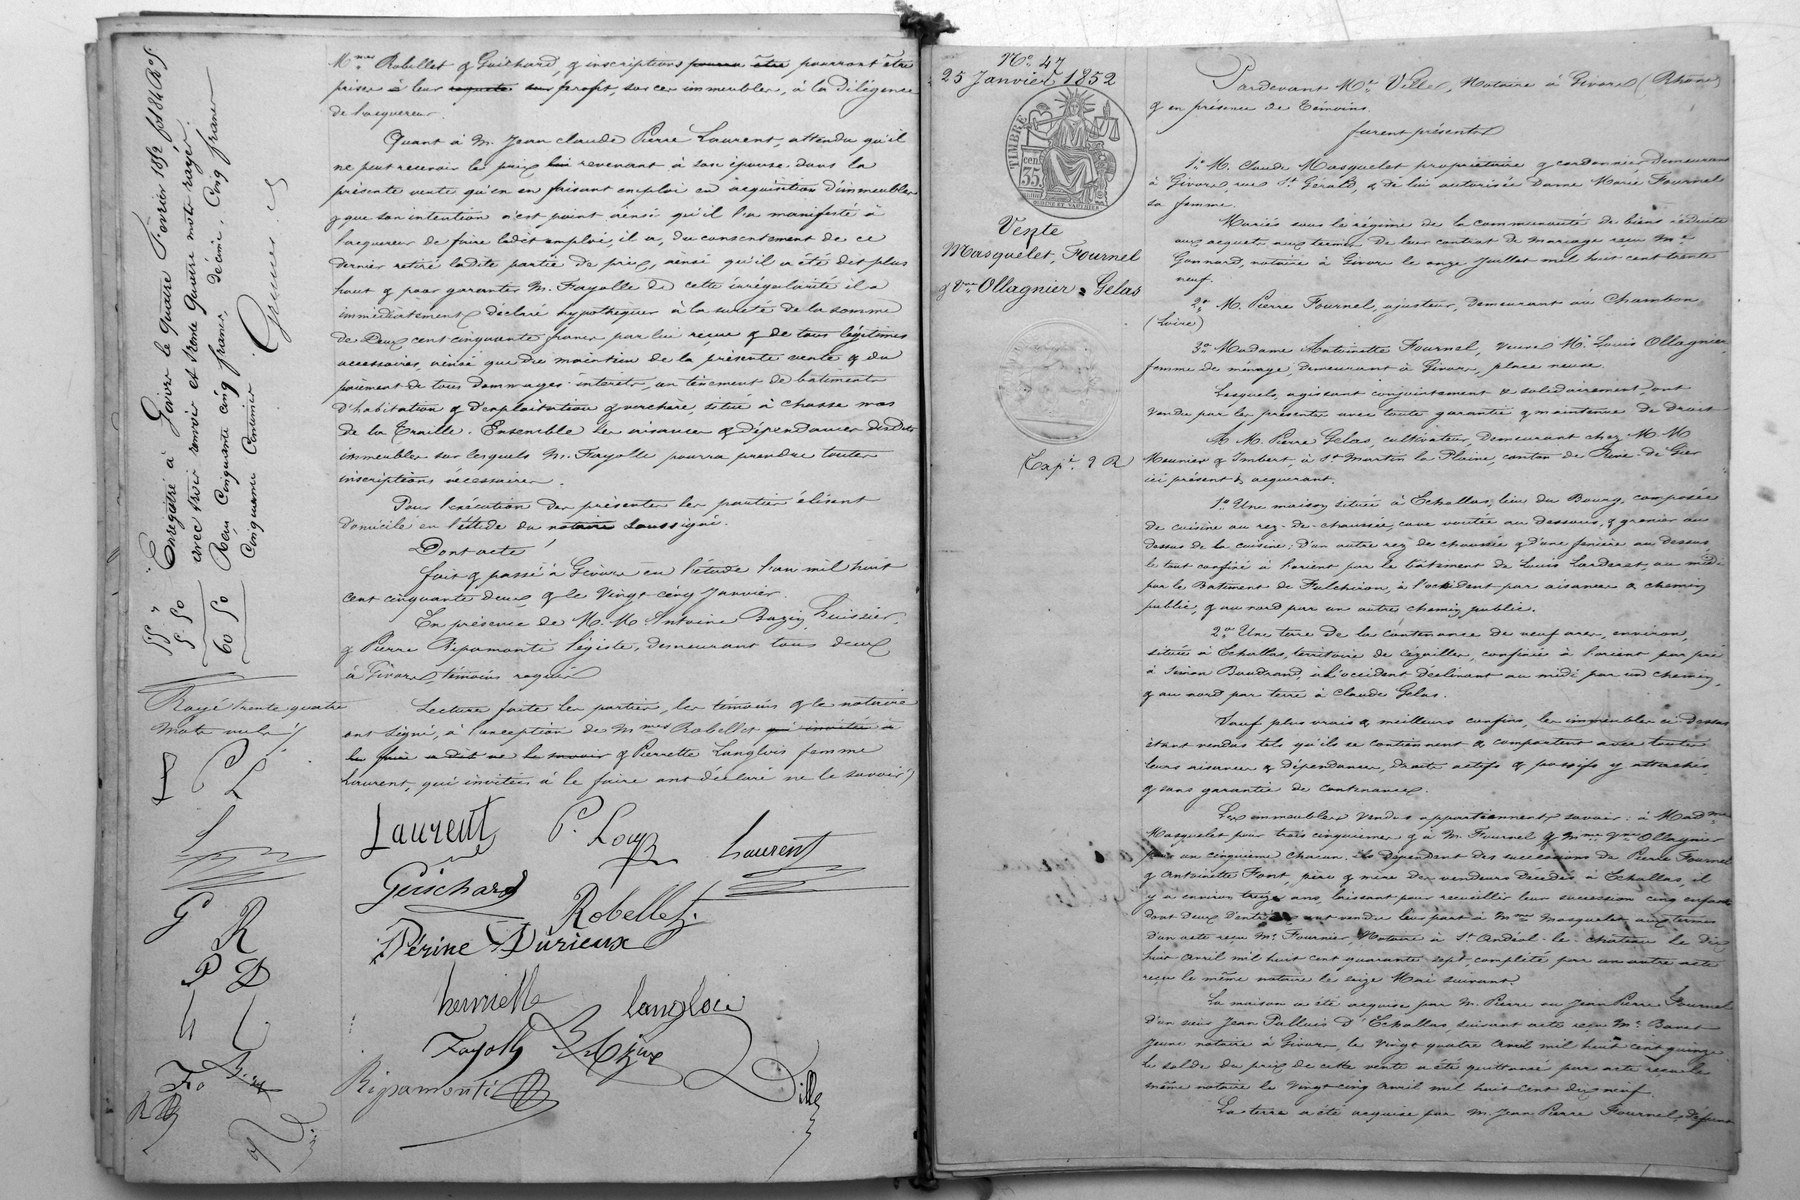 Mmes Robellet & Guichard, & inscriptions pourra être pourront être
prises à leur requête sur profit, sur ces immeubles, à la diligence
de l'acquéreur.
Quant à M. Jean Claude Pierre Laurent, attendu qu'il
ne peut recevoir le prix lui revenant à son épouse dans la
présente vente qu'en en faisant emploi en acquisition d'immeubles
& que son intention n'est point ainsi qu'il l'a manifesté à
l'acquéreur de faire ledit emploi, il a, du consentement de ce
dernier retiré ladite partie de prix, ainsi qu'il a été dit plus
haut & pour garantir M. Fayolle de cette irrégularité il a
immédiatement déclaré hypothéquer à la sureté de la somme
de Deux cent cinquante francs par lui reçue & de tous légitimes
accessoires, ainsi que du maintien de la présente vente & du
paiement de tous dommages-intérêts, un tènement de bâtiments
d'habitation & d'exploitation & verchère, situé à Chasse mas
de la Ensemble les aisances & dépendances desdits
immeubles sur lesquels M. Fayolle pourra prendre toutes
inscriptions nécessaires.
Pour l'exécution des présentes les parties élisent
domicile en l'étude du notaire soussigné.
Dont acte
fait & passé à Givors en l'étude l'an mil huit
cent cinquante deux & le vingt cinq Janvier.
En présence de M. M. Antoine Bazin, huissier,
& Pierre Ripamonti légiste, demeurant tous deux
à Givors, témoins requis
Lecture faite les parties, les témoins & le notaire
ont signé, à l'exception de Mmes Robellet qui invitée à
le faire a dit ne le savoir & Pierrette Langlois femme
Laurent, qui invitées à le faire ont déclaré ne le savoir
Laurent P. Laurent
Guichard
Robellet
Périne Durieux
henriette langlois
Fayolle
Ripamonti Ville
Enregistré à Givors le quatre Février 1852, fol 84
avec trois renvois et trente quatre mots rayés.
Reçu Cinquante cinq francs, décime, Cinq francs
Cinquante Centimes
55 "
5 50
60 50
Rayé trente quatre
mots nuls
P L
G R
P D
h L
No. 47
25 Janvier 1852
TIMBRE
35 cent
Vente
Masquelet, Fournel
& Vve Ollagnier à Gelas
Pardevant Me Ville, Notaire à Givors (Rhône)
& en présence de témoins.
furent présents
1o M. Claude Masquelet propriétaire & cordonnier demeurant
à Givors, rue St Gérald, & de lui autorisée Dame Marie Fournel
sa femme.
Mariés sous le régime de la communauté de biens réduite
aux acquets aux termes de leur contrat de mariage reçu Me
Gonnard, notaire à Givors le onze Juillet mil huit cent trente
neuf.
2o M. Pierre Fournel, ajusteur, demeurant au Chambon
(Loire)
3o Madame Antoinette Fournel, veuve M. Louis Ollagnier
femme de ménage, demeurant à Givors, place neuve.
Lesquels, agissant conjointement & solidairement, ont
vendu par les présentes avec toute garantie & maintenue de droit
A M. Pierre Gelas, cultivateur, demeurant chez M M
Meunier & Imbert, à St Martin la Plaine, canton de Rive de Gier
ici présent & acquérant.
1o Une maison située à Echallas, lieu du Bourg, composée
de cuisine au rez-de-chaussée, cave voutée au dessous, & grenier au
dessus de la cuisine; d'un autre rez de chaussée & d'une fenière au dessus
le tout confiné à l'orient par le bâtiment de Louis Larderet, au midi
par le Bâtiment de Fulchiron, à l'occident par aisances & chemin
public, & au nord par un autre chemin public.
2o Une terre de la contenance de neuf ares, environ,
située à Echallas, territoire de confinée à l'orient par pré
à Simon Baudrand à l'occident déclinant au midi par un chemin,
& au nord par terre à Claude Gelas.
Sauf plus vrais & meilleurs confins, les immeubles ci-dessus
étant vendus tels qu'ils se contiennent & comportent avec toutes
leurs aisances & dépendances, droits actifs & passifs y attachés
& sans garantie de contenance.
Les immeubles vendus appartiennent, savoir: à Madme
Masquelet pour trois cinquièmes & à M. Fournel & Mme Vve Ollagnier
pour un cinquième chacun. Ils dépendent des successions de Pierre Fournel
& Antoinette Font, père & mère des vendeurs décédés à Echallas, il
y a environ treize ans, laissant pour recueillir leur succession cinq enfants
dont deux d'entre ont vendu leur part à Mme Masquelet, aux termes
d'un acte reçu Me Fournier, Notaire à St Andéol-le-château le dix
huit avril mil huit cent quarante sept, complété par un autre acte
reçu le même notaire le seize Mai suivant.
La maison a été acquise par M. Pierre ou Jean Pierre Fournel
d'un sieur Jean Palluis d'Echallas, suivant acte reçu Me
jeune notaire à Givors, le vingt quatre avril mil huit cent quinze.
Le solde du prix de cette vente a été quittancé par acte reçu le
même notaire le vingt cinq avril mil huit cent dix neuf.
La terre a été acquise par M. Jean Pierre Fournel, défunt